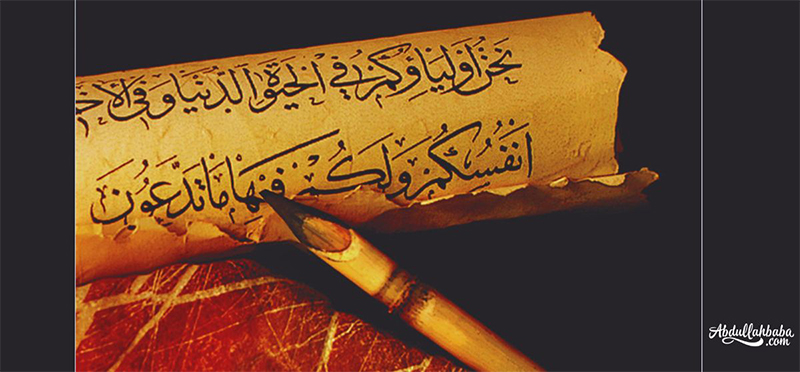 نَحْنُ أَوْلِيَاؤُكُمْ فِي الْحَيَوٰةِ الدُّنْيَا وَفِي الْآخ
أَنْفُسُكُمْ وَلَكُمْ فِيهَا مَا تَدَّعُونَ
Abdullahbaba
.com